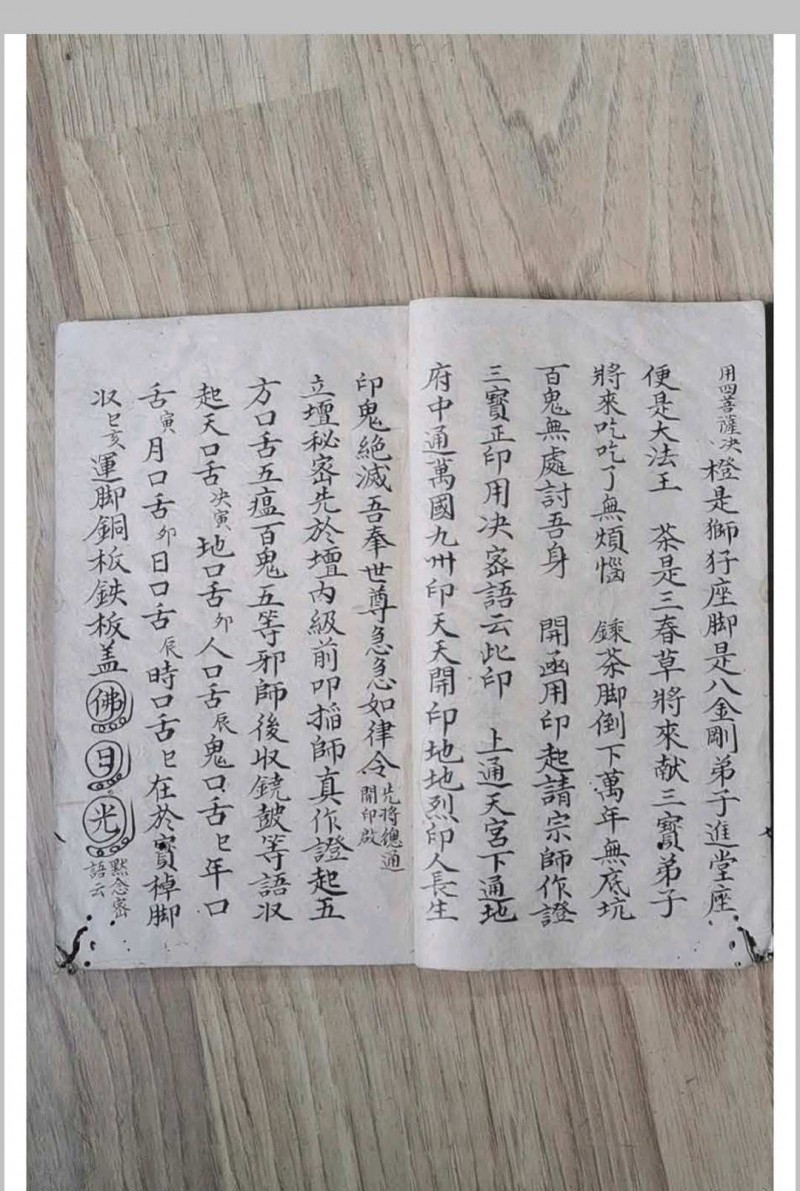 用四菩薩决橙是獅犴座脚是八金剛弟子進堂座
便是大法王　茶是三春草將來献三寳弟子
將來吃吃了無煩惱　鍊茶脚倒下萬年無底坑
百鬼無處討吾身　開函用印起請宗師作證
三寳正印用决宻語云此印　上通天宮下通地
府中通萬國九州印天天開印地地烈印人長生
印鬼絕滅吾奉世尊急急如律令先将總通開印啟
立壇秘宻先於壇內級前叩指師真作證起五
方口舌五瘟百鬼五等邪師後収鐃皷等語収
起天口舌决寅地口舌夘人口舌辰鬼口舌巳年口
舌寅月口舌夘日口舌辰時口舌巳在於寳棹脚
収巳亥運脚銅板鉄板盖佛日光黙念宻語云